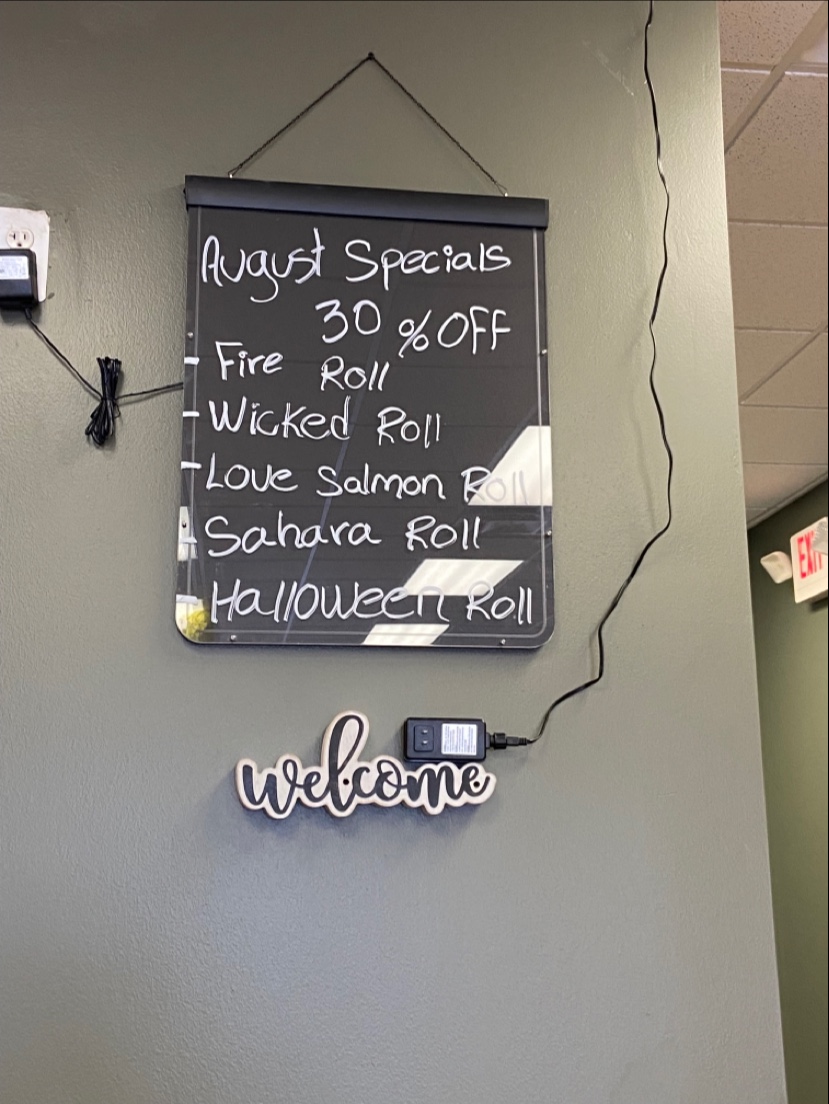 August Specials
30 % OFF
- Fire Roll
- Wicked Roll
- Love Salmon Roll
- Sahara Roll
- Halloween Roll
welcome